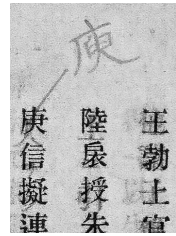 庾
王勃上官
陸扆授朱
庚信擬連